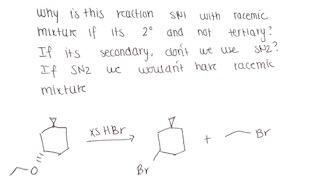 why is this reaction SN1 with racemic
mixture if its 2° and not tertiary?
If its secondary, don't we use SN2?
If SN2 we wouldn't have racemic
mixture
xs HBr
+
Br
O
Br